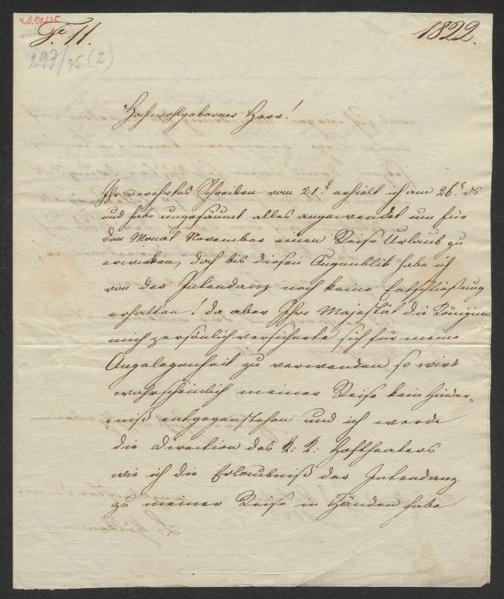 F. 11.
1822.
297/75.(2)
Hochwohlgeborner Herr!
Ihr verehrtes Schreiben vom 21t erhielt ich am 26t ds
und habe ungesäumt alles angewendet um für
den Monat November einen Reise Urlaub zu
erwirken, doch bis diesen Augenblik habe ich
von der Intendanz noch keine Entschließung
erhalten! da aber Ihre Majestät die Königin
mich persönlich versicherte sich für meine
Angelegenheit zu verwenden so wird
wahrscheinlich meiner Reise kein Hinder-
niß entgegenstehen und ich werde
die Direction des k: k: Hoftheaters
wie ich die Erlaubniß der Intendanz
zu meiner Reise in Händen habe